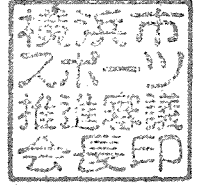 横浜市
スポーツ
推進審議
会長印